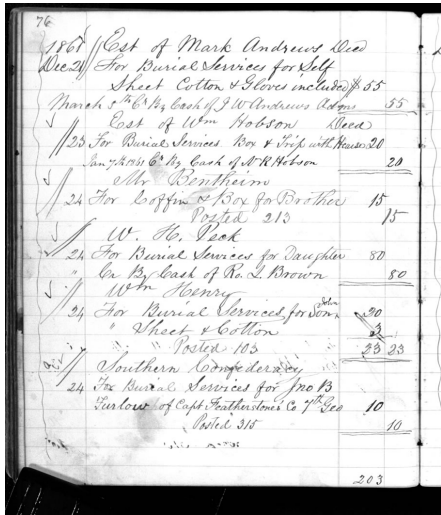 76
1861 Est of Mark Andrews Decd
Dec 21 For Burial Services for Self
Sheet Cotton & Gloves included $ 55
March 5th Cr By Cash of J W Andrews Adm 55
Est of Wm Hobson Decd
23 For Burial Services Box & Trip with Hearse 20
Jan 7th 1861 Cr By Cash of N R Hobson 20
Mr Bentheim
24 For Coffin & Box for Brother 15
Posted 213 15
W. H. Peck
24 For Burial Services for Daughter 80
" Cr By Cash of Ro. L Brown 80
Wm Henry
24 For Burial Services for Son John 20
" Sheet & Cotton 3
Posted 103 23 23
Southern Confederacy
24 For Burial Services for Jno B
Turlow of Capt Featherstone's Co 7th Geo 10
Posted 315 10
203